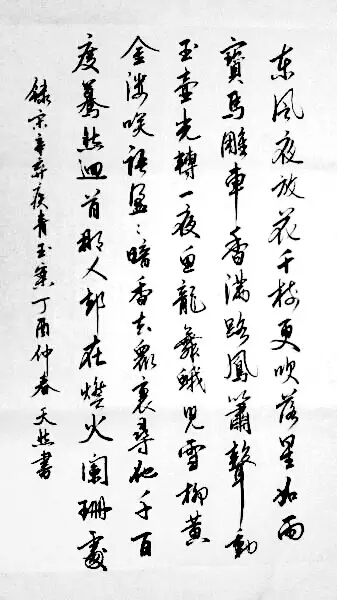 东风夜放花千树更吹落星如雨
寳馬雕車香满路鳳簫聲動
玉壷光轉一夜魚龍舞蛾兒雪柳黄
金缕笑語盈:暗香去眾裏尋他千百
度驀然迴首那人却在燈火闌珊處
録宋辛弃疾青玉案丁酉仲春天然書